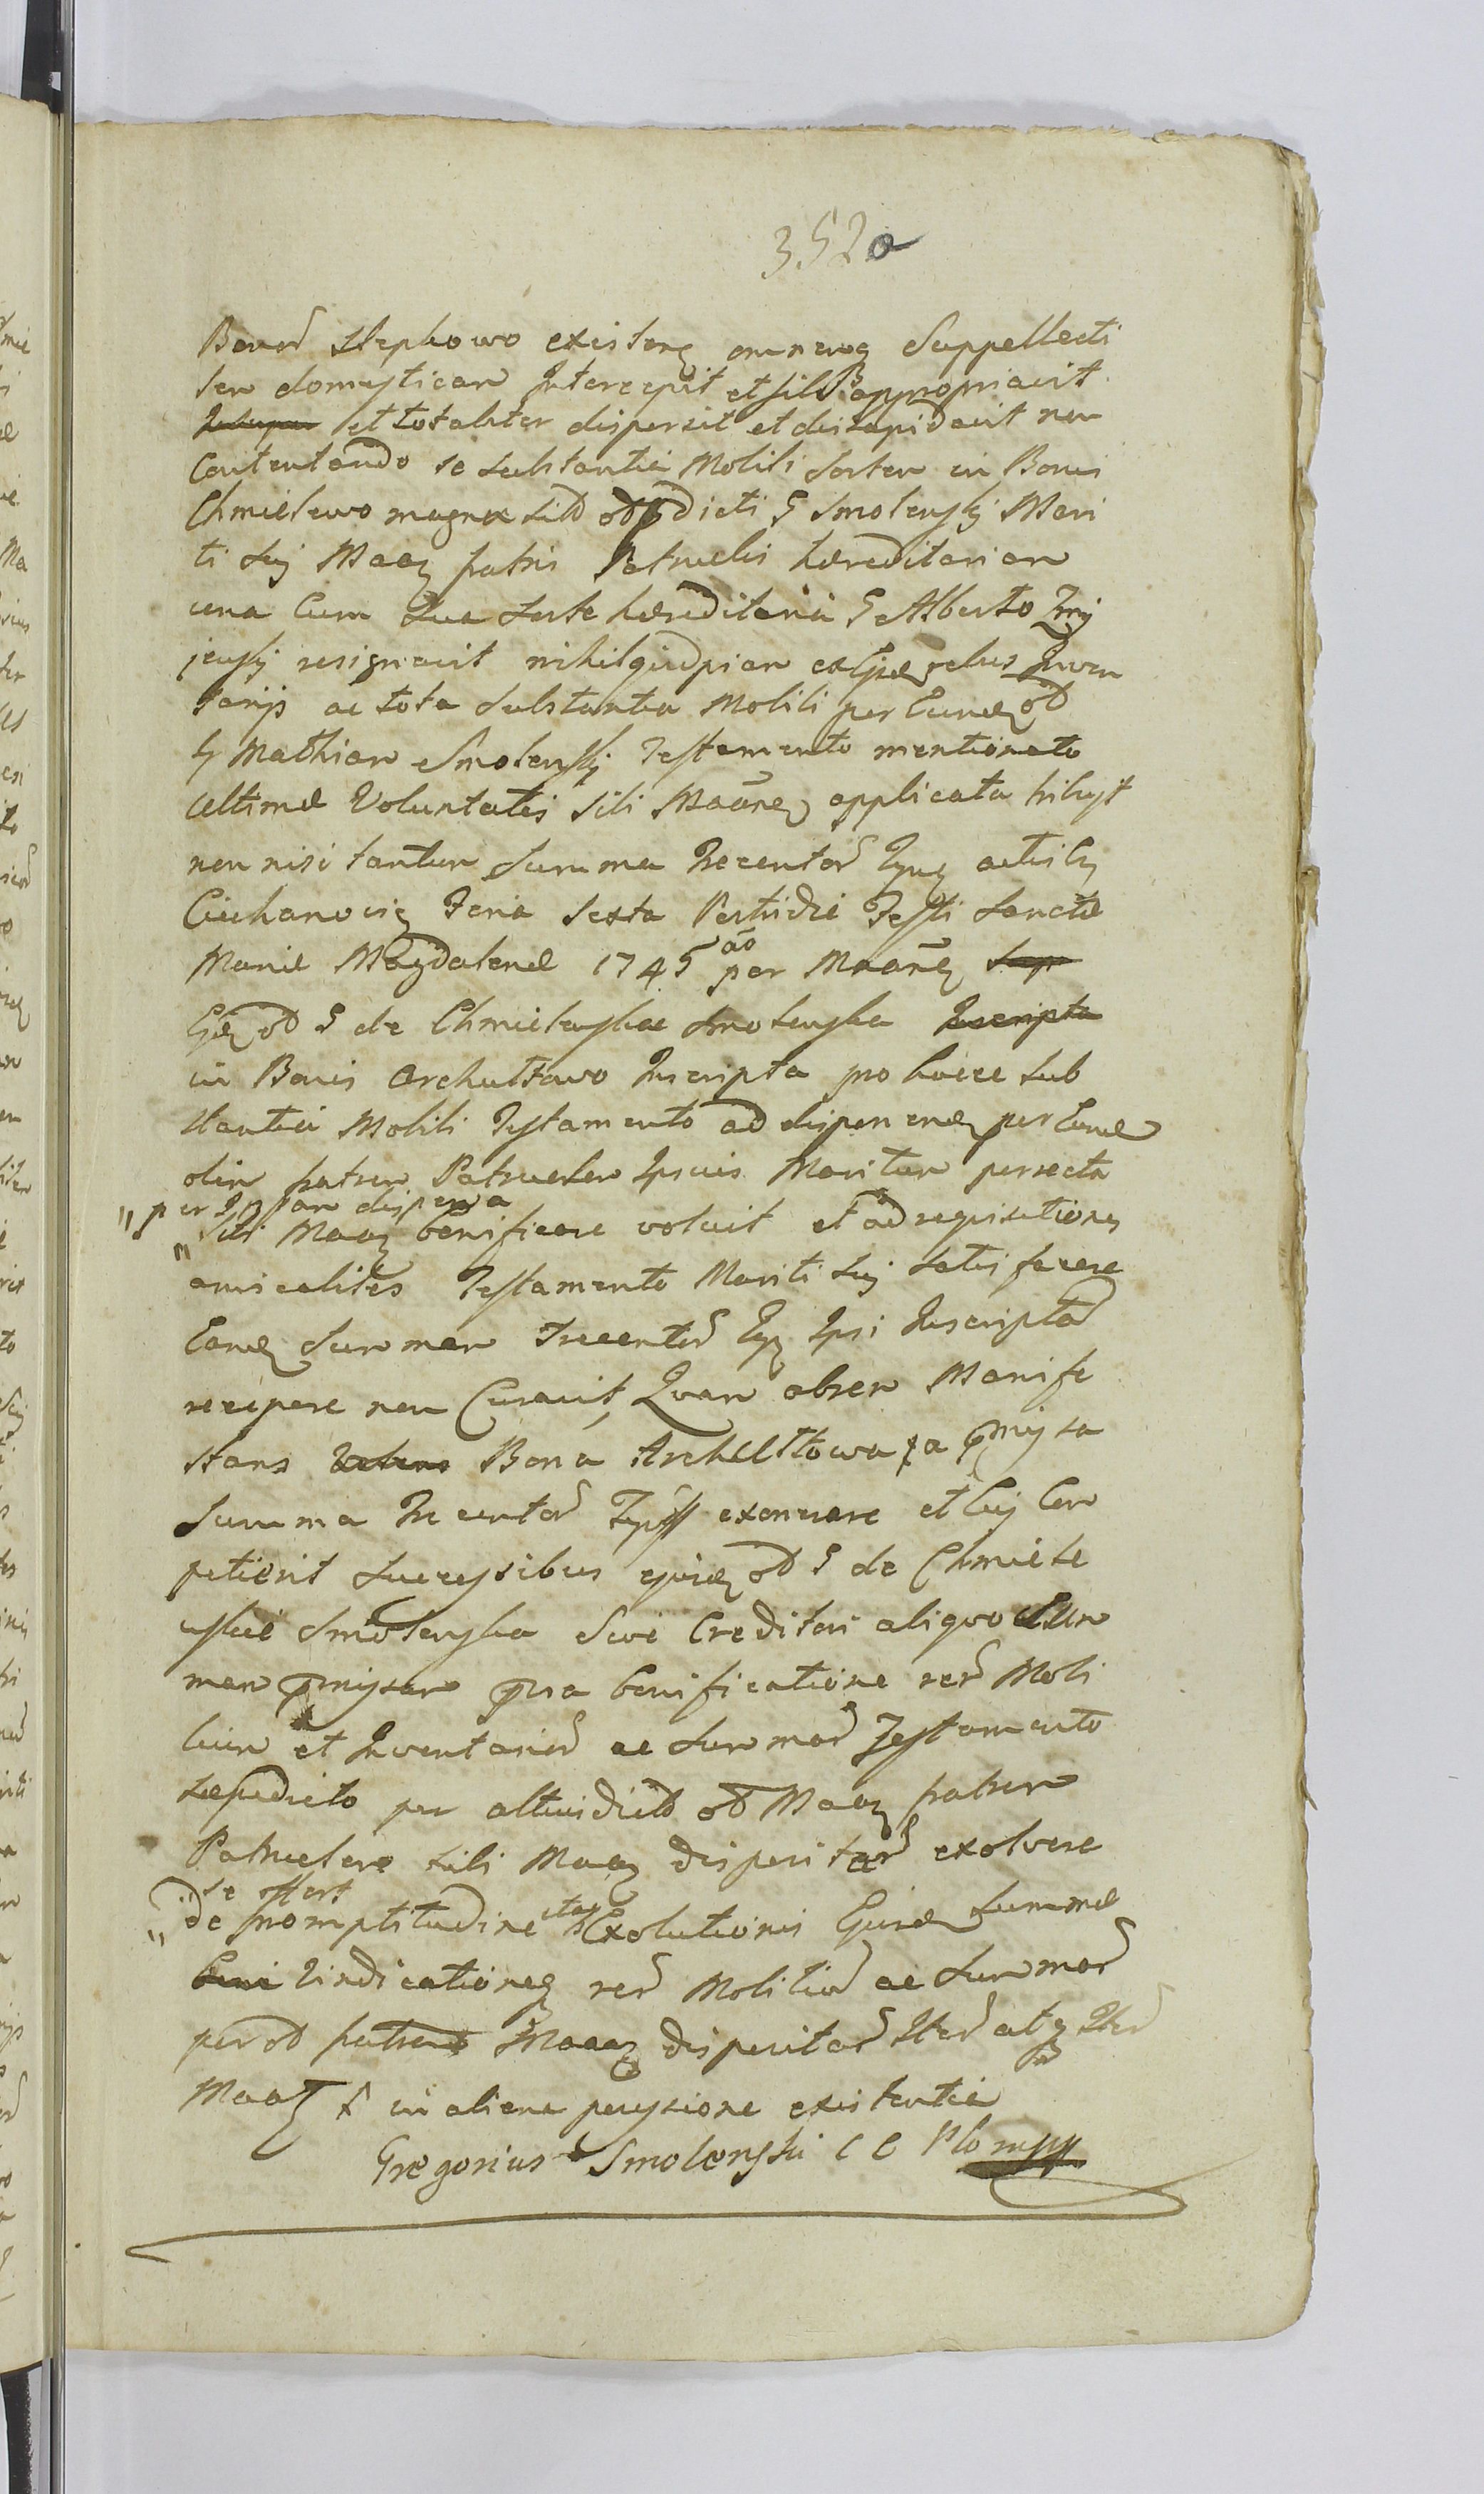 352a
Bonor Stepkowo existen omnemq Suppellecti
lem domesticam Intercepit et sibi appropriavit
et totaliter dispersit et disrapidavit non
Contentando se substantia Mobili Sortem in Bonis
Chmielewo magna sitt od pdicti G Smolenskj Mari
ti suj Maaz fratris Patruelis hæreditariam
una Cum sua sorte hæreditaria G Alberto
jewskj resignavit nihilqudpiam ex rebus Inven
tarijs ac tota Substantia Mobili per Eund od
G Mathiam Smolenskj Testamento mentionato
Ultimæ Voluntatis sibi Maane applicata tribuit
non nisi tantum Summa Trecentor actis
Ciechanovien Feria Sexta Postridie Festi Sanctæ
Mariæ Magdalenæ 1745 ao per Maane Sup
od G de Chmielewskie Smolenska Inscripta
in Bonis Archuttowo Inscripta pro hacce sub
stantia Mobili Testamento ad dispenend per Eund
olim fratrem Patruelem Ipsius Maritum
" per dispersa
" Sibi Maaz bonificare voluit et ad requisitiones
amicabiles Testamento Mariti suj satisfacere
Eand Summam Trecentor Ipsi Inscriptam
recipere non Curavit, Quam obrem Manife
stans Bona Archuttowo a pmissa
Summa Trecentor exonerare et Cuj Com
petierit Successibus ejusd od G de Chmiele
wskie Smolenska sive Creditori aliquo Sum
mam pmissam bonificatione rer Mobi
lium et Inventarior ac Summar Testamento
sæpedicto per altuidict od Maaz fratrem
Patruelem sibi Maaz disperitar exolvere
se offert
" De promptitudine itaq Exolutionis Ejusd Summæ
Vindicationeq rer Mobilium ac Summar
per od fratrem Maaz disperitar Iter atq Iter
Maaz in aliena possessione existentia
Gregorius Smolenski C C